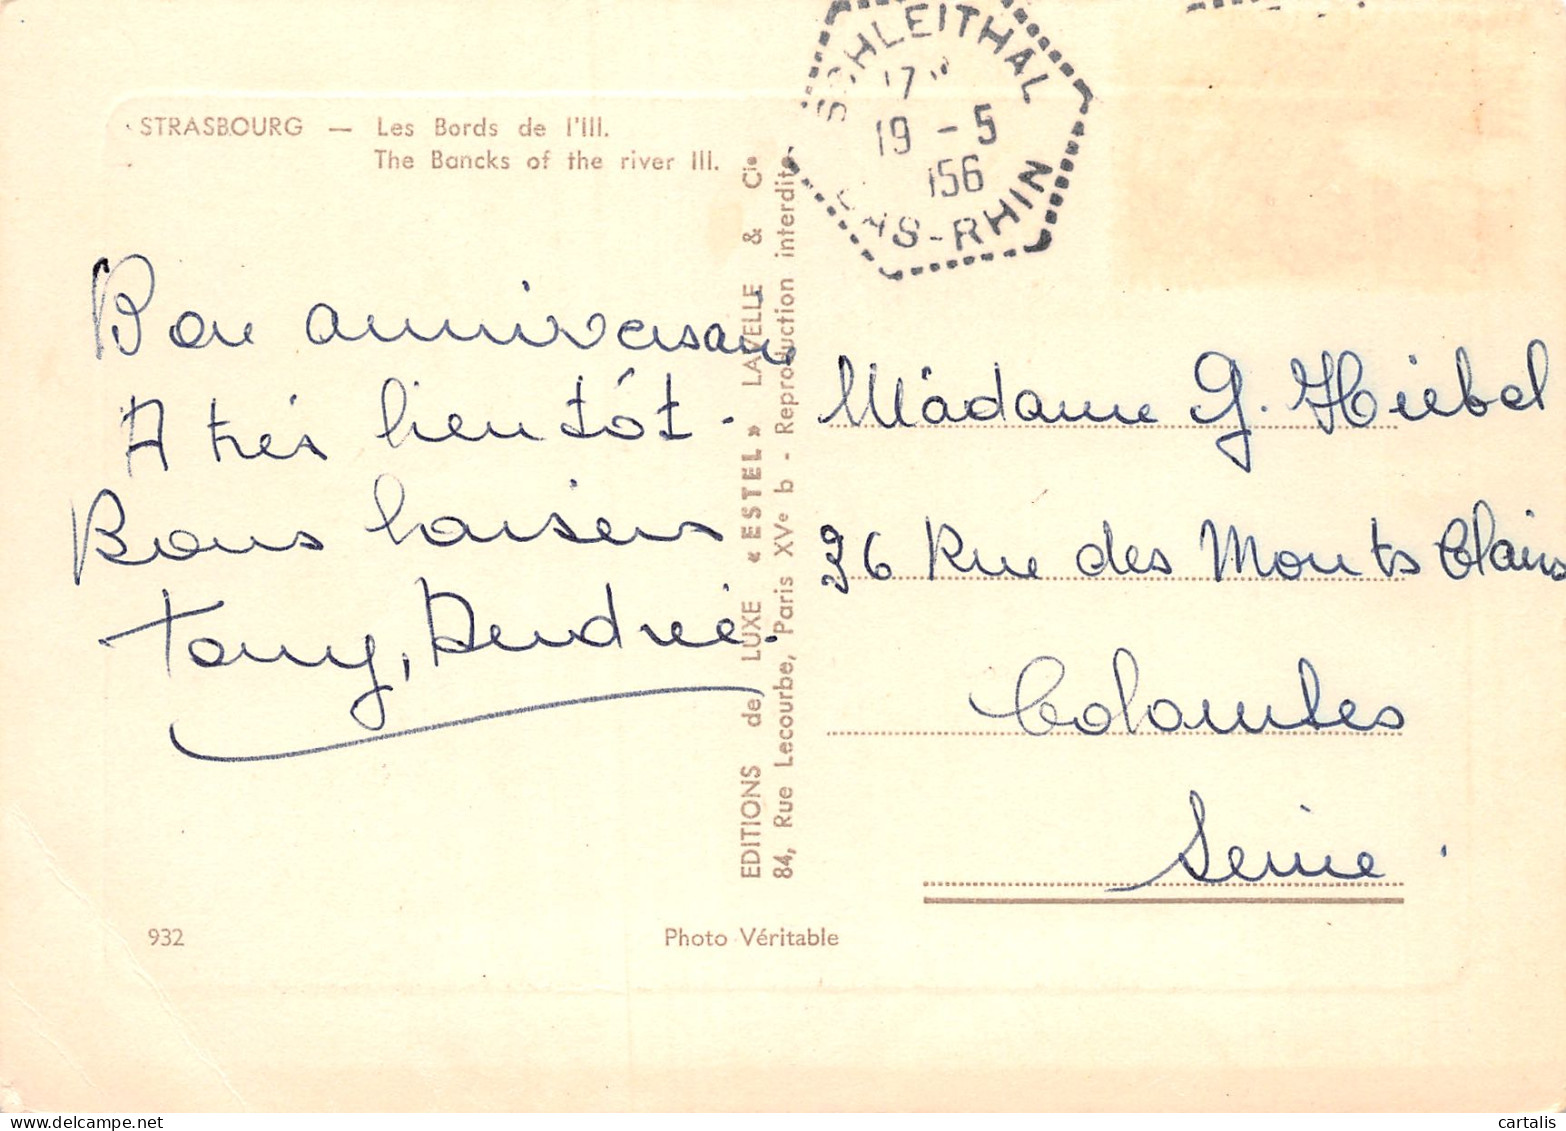 STRASBOURG — Les Bords de l'Ill.
The Bancks of the river Ill.
SCHLEITHAL
19 - 5
156
BAS-RHIN
Bon anniversaire
A très bientôt -
Bons baisers
Tony, Andrée.
EDITIONS de LUXE « ESTEL » LAVELLE & Cie
84, Rue Lecourbe, Paris XVe b - Reproduction interdite
Madame G. Hiebel
26 Rue des Monts Clairs
Colombes
Seine.
932
Photo Véritable
cartalis
delcampe.net